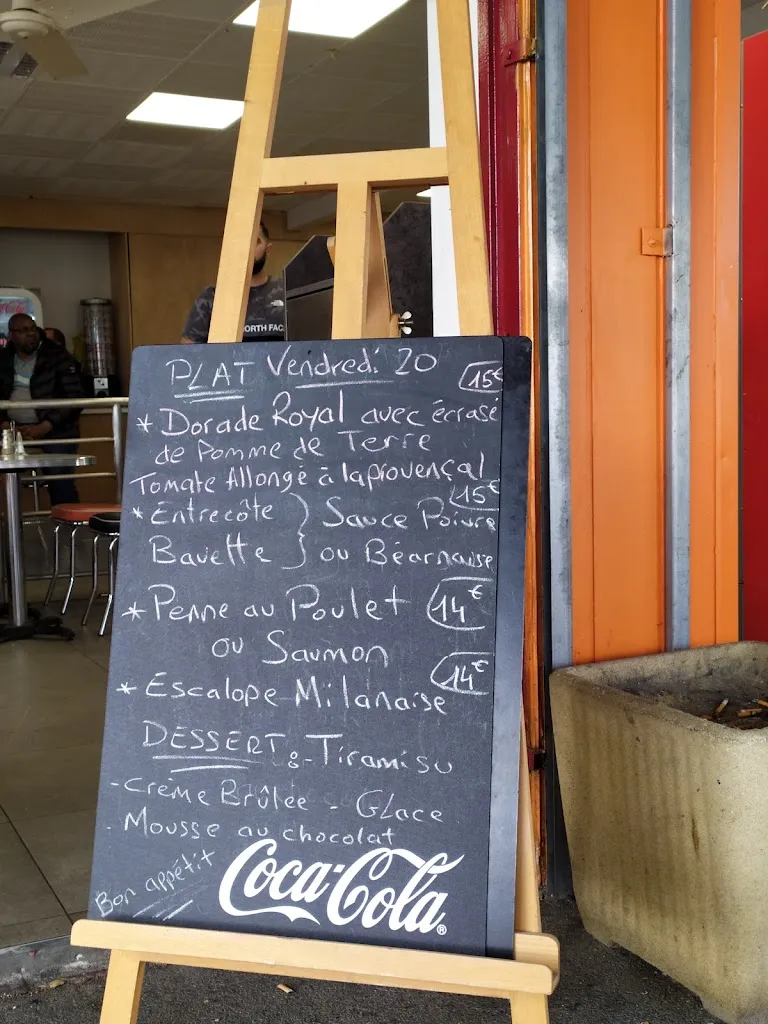 PLAT Vendredi 20
15€
* Dorade Royal avec écrasé
de Pomme de Terre
Tomate Allongé à la provençal
15€
* Entrecôte } Sauce Poivre
Bavette } ou Béarnaise
* Penne au Poulet 14€
ou Saumon
14€
* Escalope Milanaise
DESSERT : - Tiramisu
- Crème Brûlée - Glace
- Mousse au chocolat
Bon appétit
Coca-Cola®
ORTH FAC